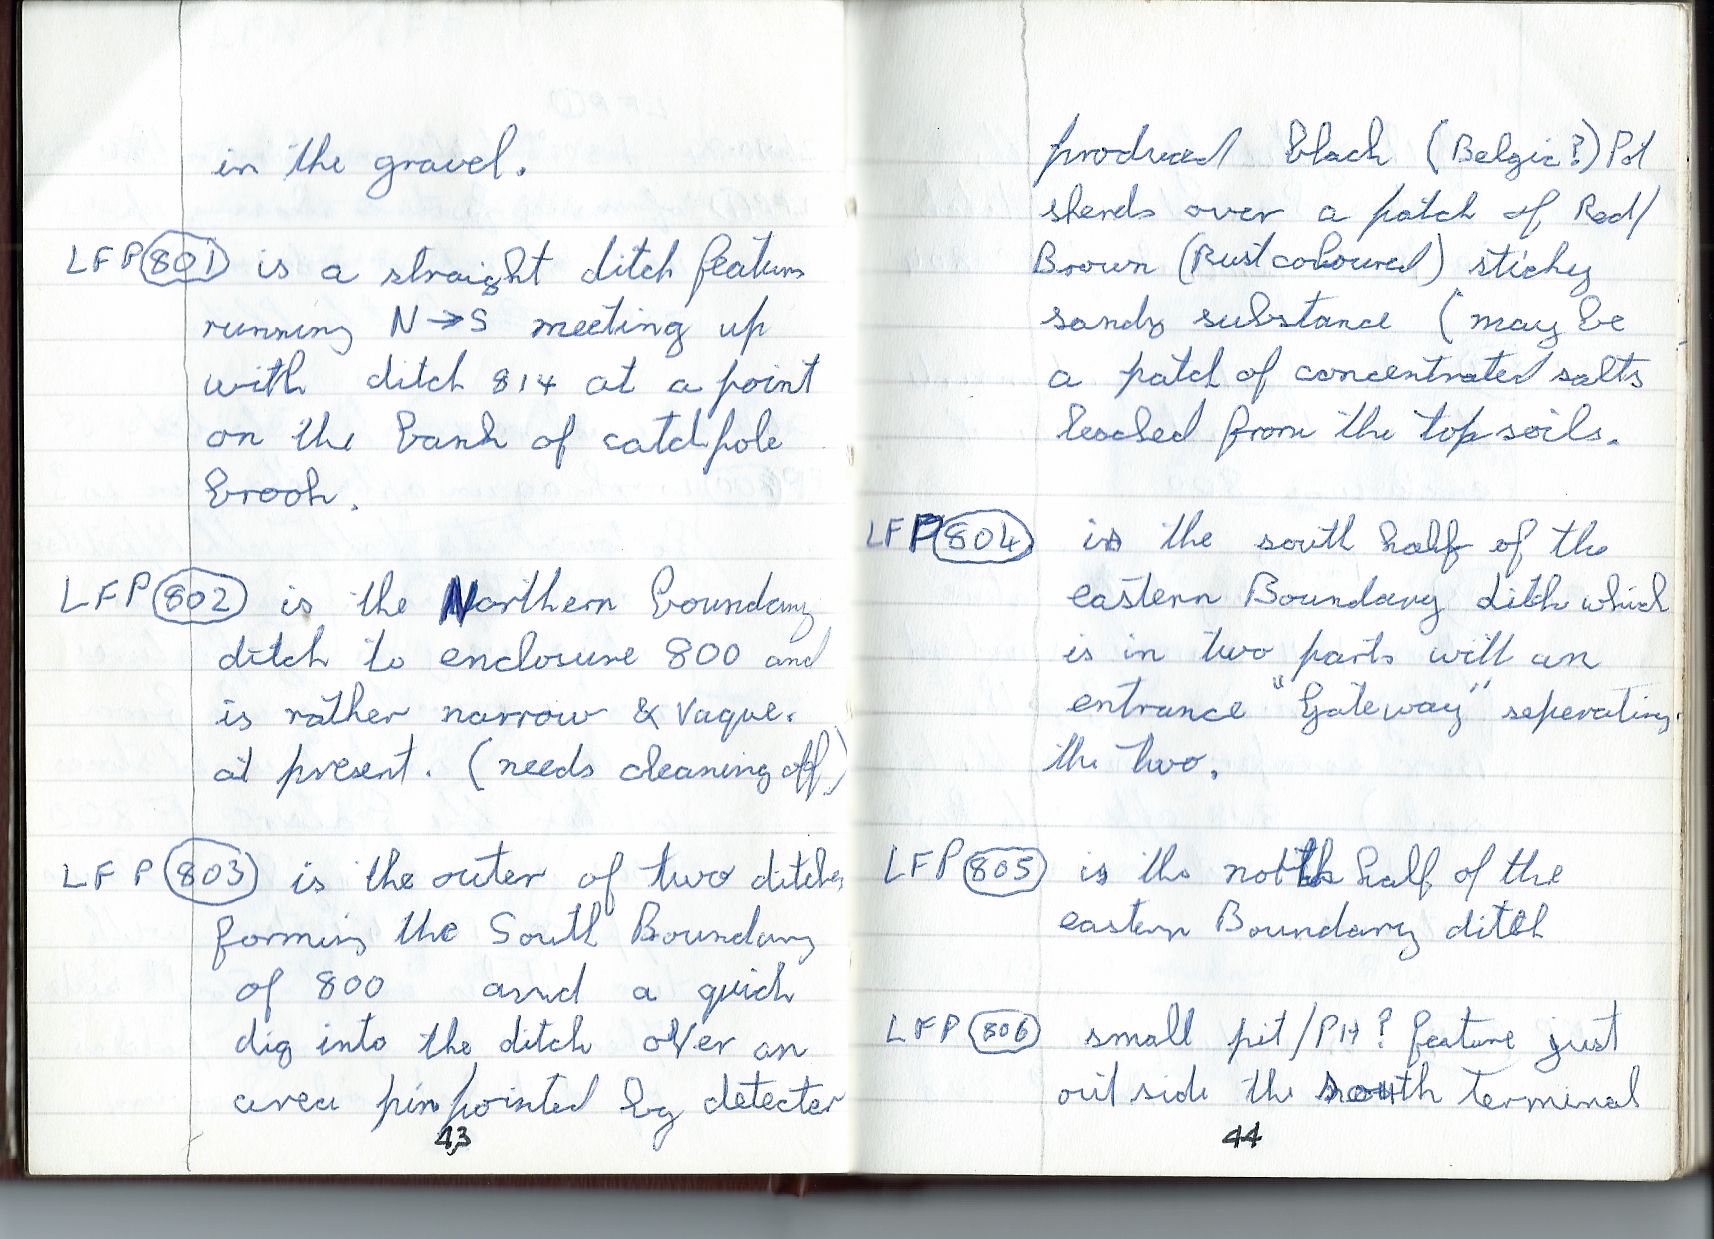 in the gravel.
LFP 801 is a straight ditch feature
running N→S meeting up
with ditch 814 at a point
on the bank of catchpole
brook.
LFP 802 is the Northern boundary
ditch to enclosure 800 and
is rather narrow & vague.
at present. (needs cleaning off)
LFP 803 is the outer of two ditches
forming the South Boundary
of 800 and a quick
dig into the ditch over an
area pinpointed by detector
43
produced black (Belgic?) Pot
sherds over a patch of Red/
Brown (Rust coloured) sticky
sandy substance (may be
a patch of concentrated salts
leached from the topsoils.
LFP 804 is the south half of the
eastern Boundary ditch which
is in two parts with an
entrance "Gateway" seperating
the two.
LFP 805 is the north half of the
eastern Boundary ditch
LFP 806 small pit/PH? feature just
outside the south terminal
44